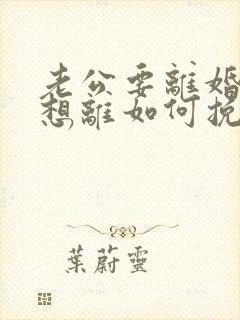 老公要離婚
想離如何挽
葉蔚靈